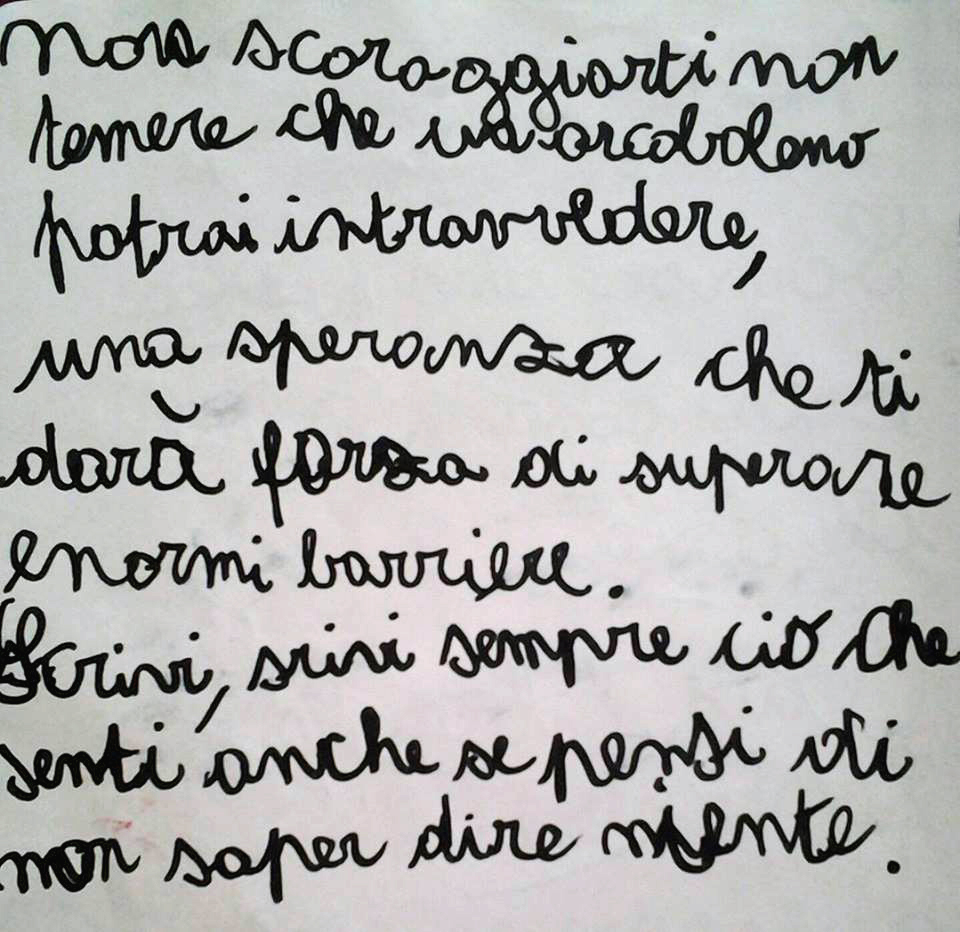 Non scoraggiarti non
temere che un arcobaleno
potrai intravvedere,
una speranza che ti
darà forza di superare
enormi barriere.
Scrivi, srivi sempre ciò che
senti anche se pensi di
non saper dire niente.